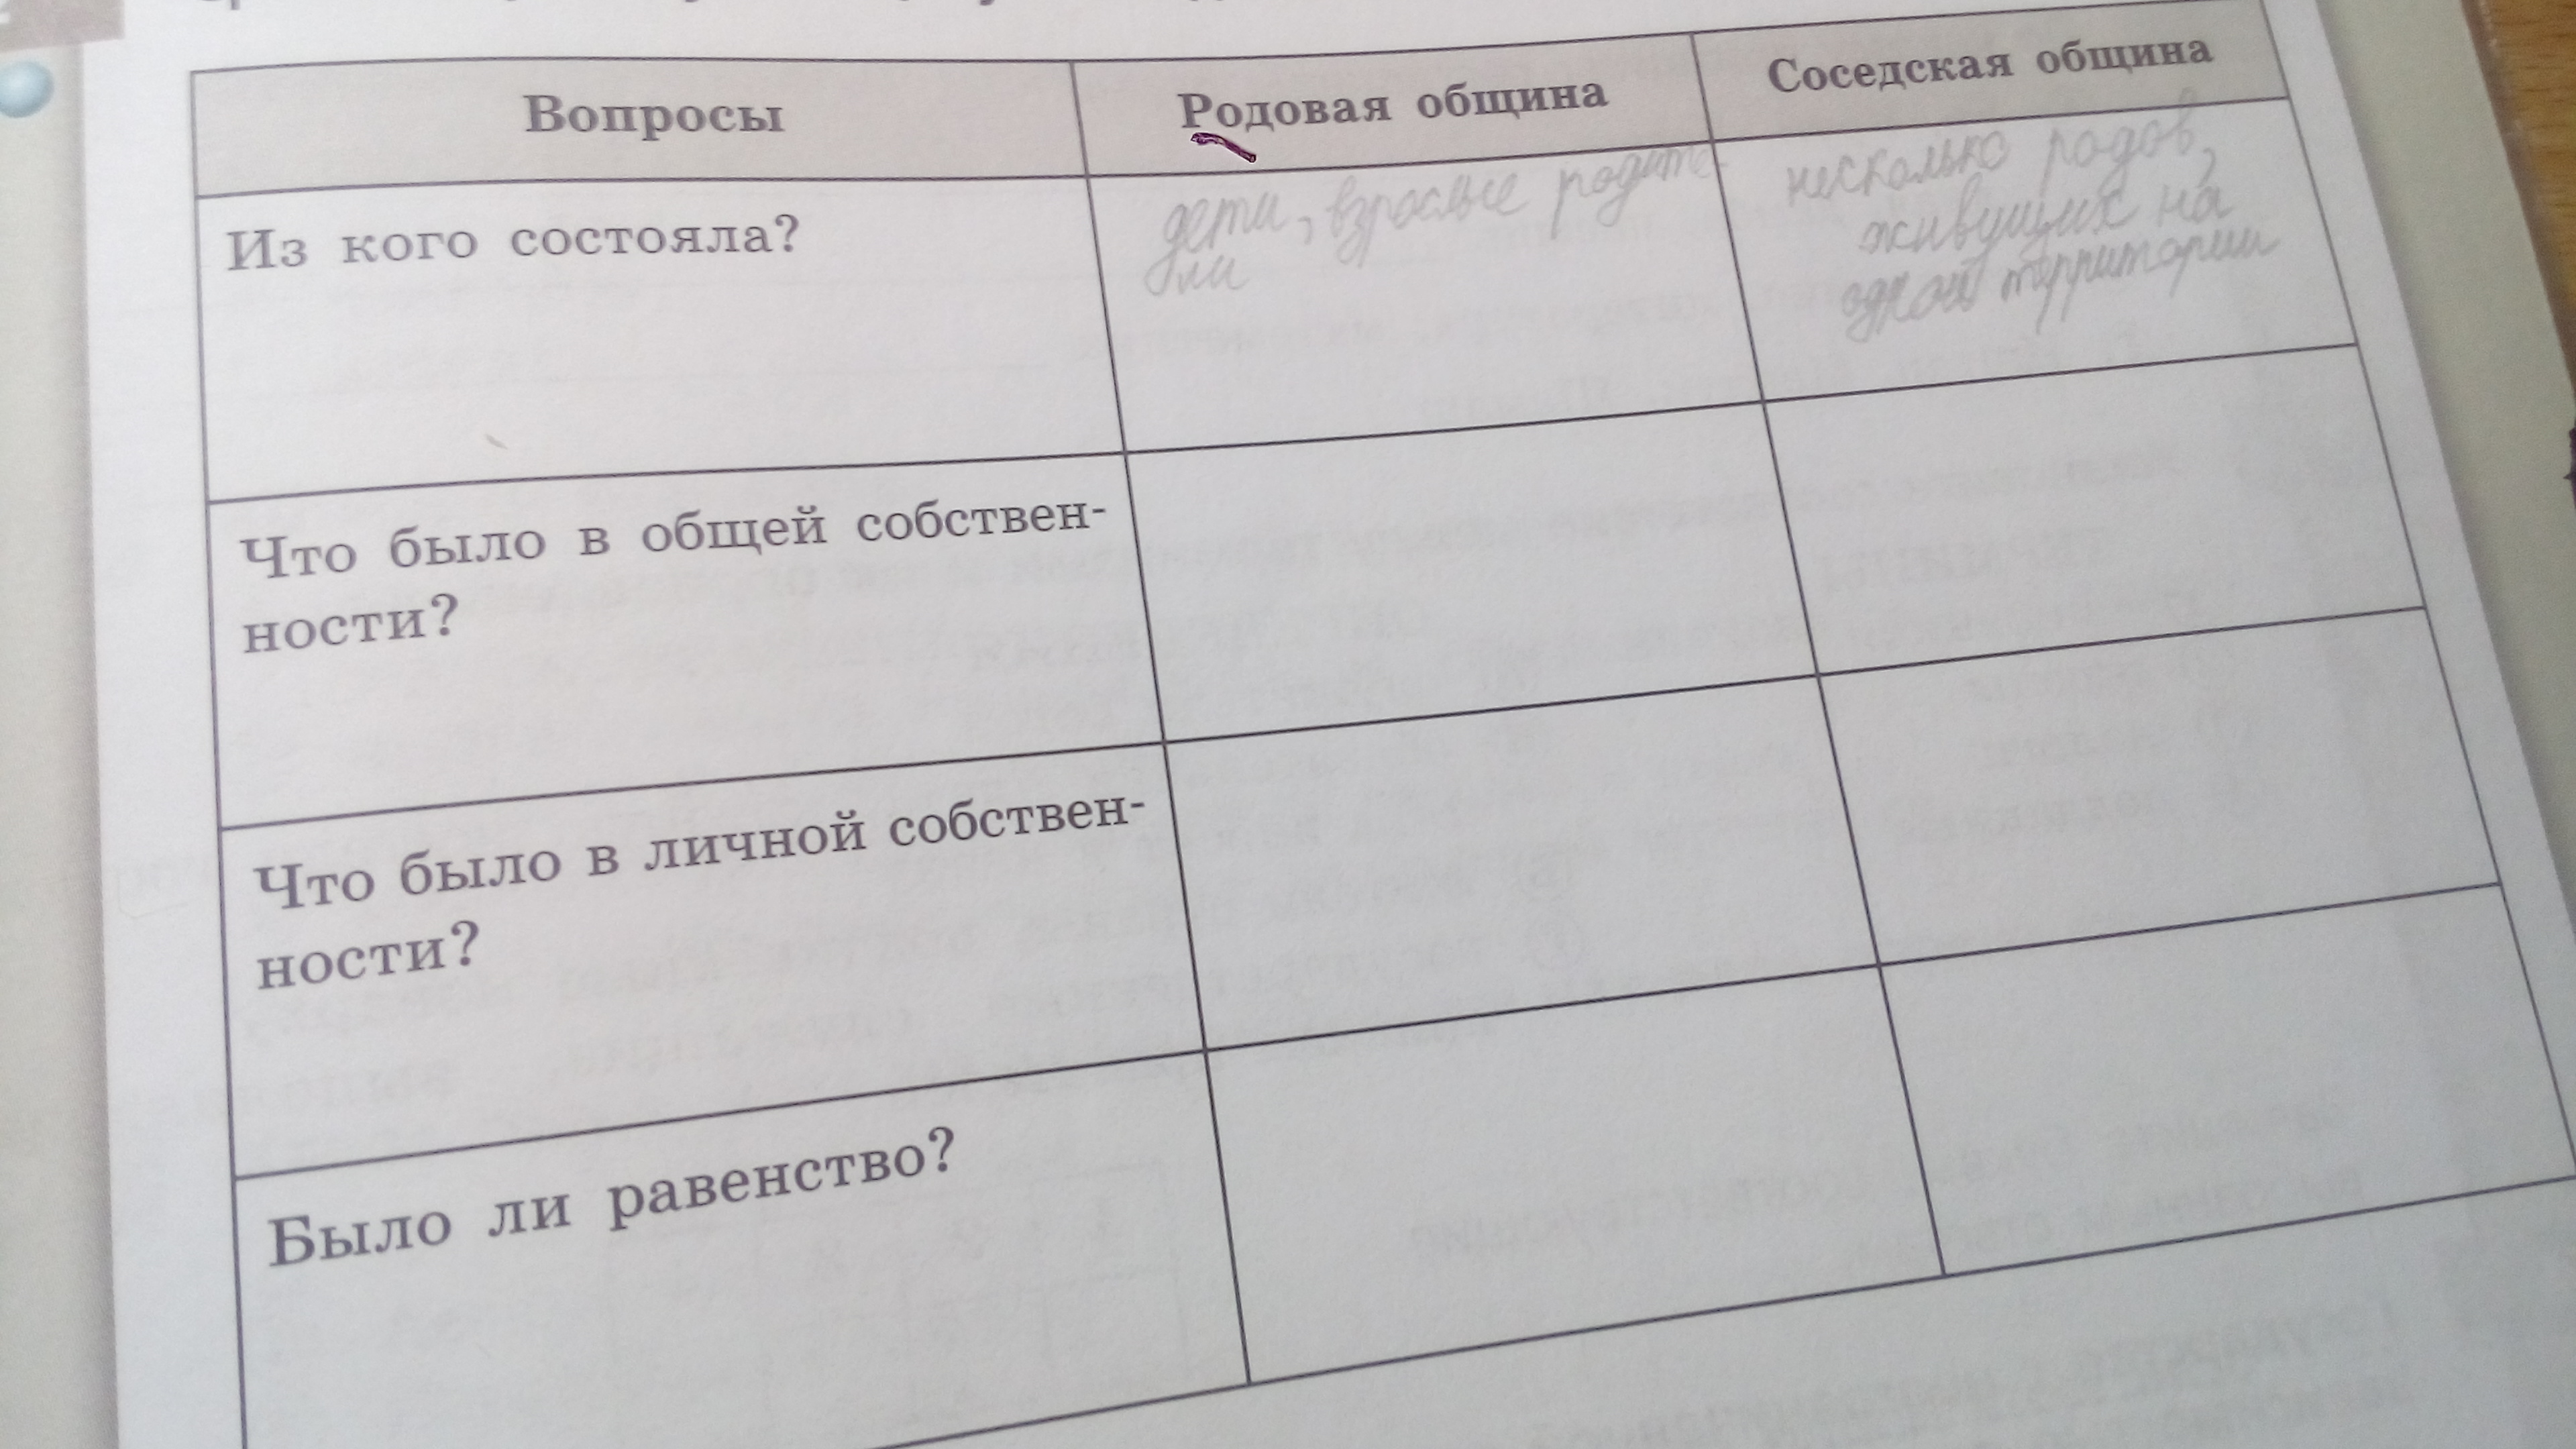 Вопросы
Родовая община
Соседская община
Из кого состояла?
дети, взрослые родите-
ли
несколько родов,
живущих на
одной территории
Что было в общей собствен-
ности?
Что было в личной собствен-
ности?
Было ли равенство?